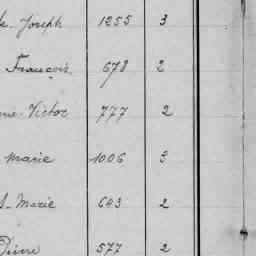 Joseph 1255 3
François 678 2
Victor 777 2
Marie 1006 3
Marie 643 2
Pierre 577 2